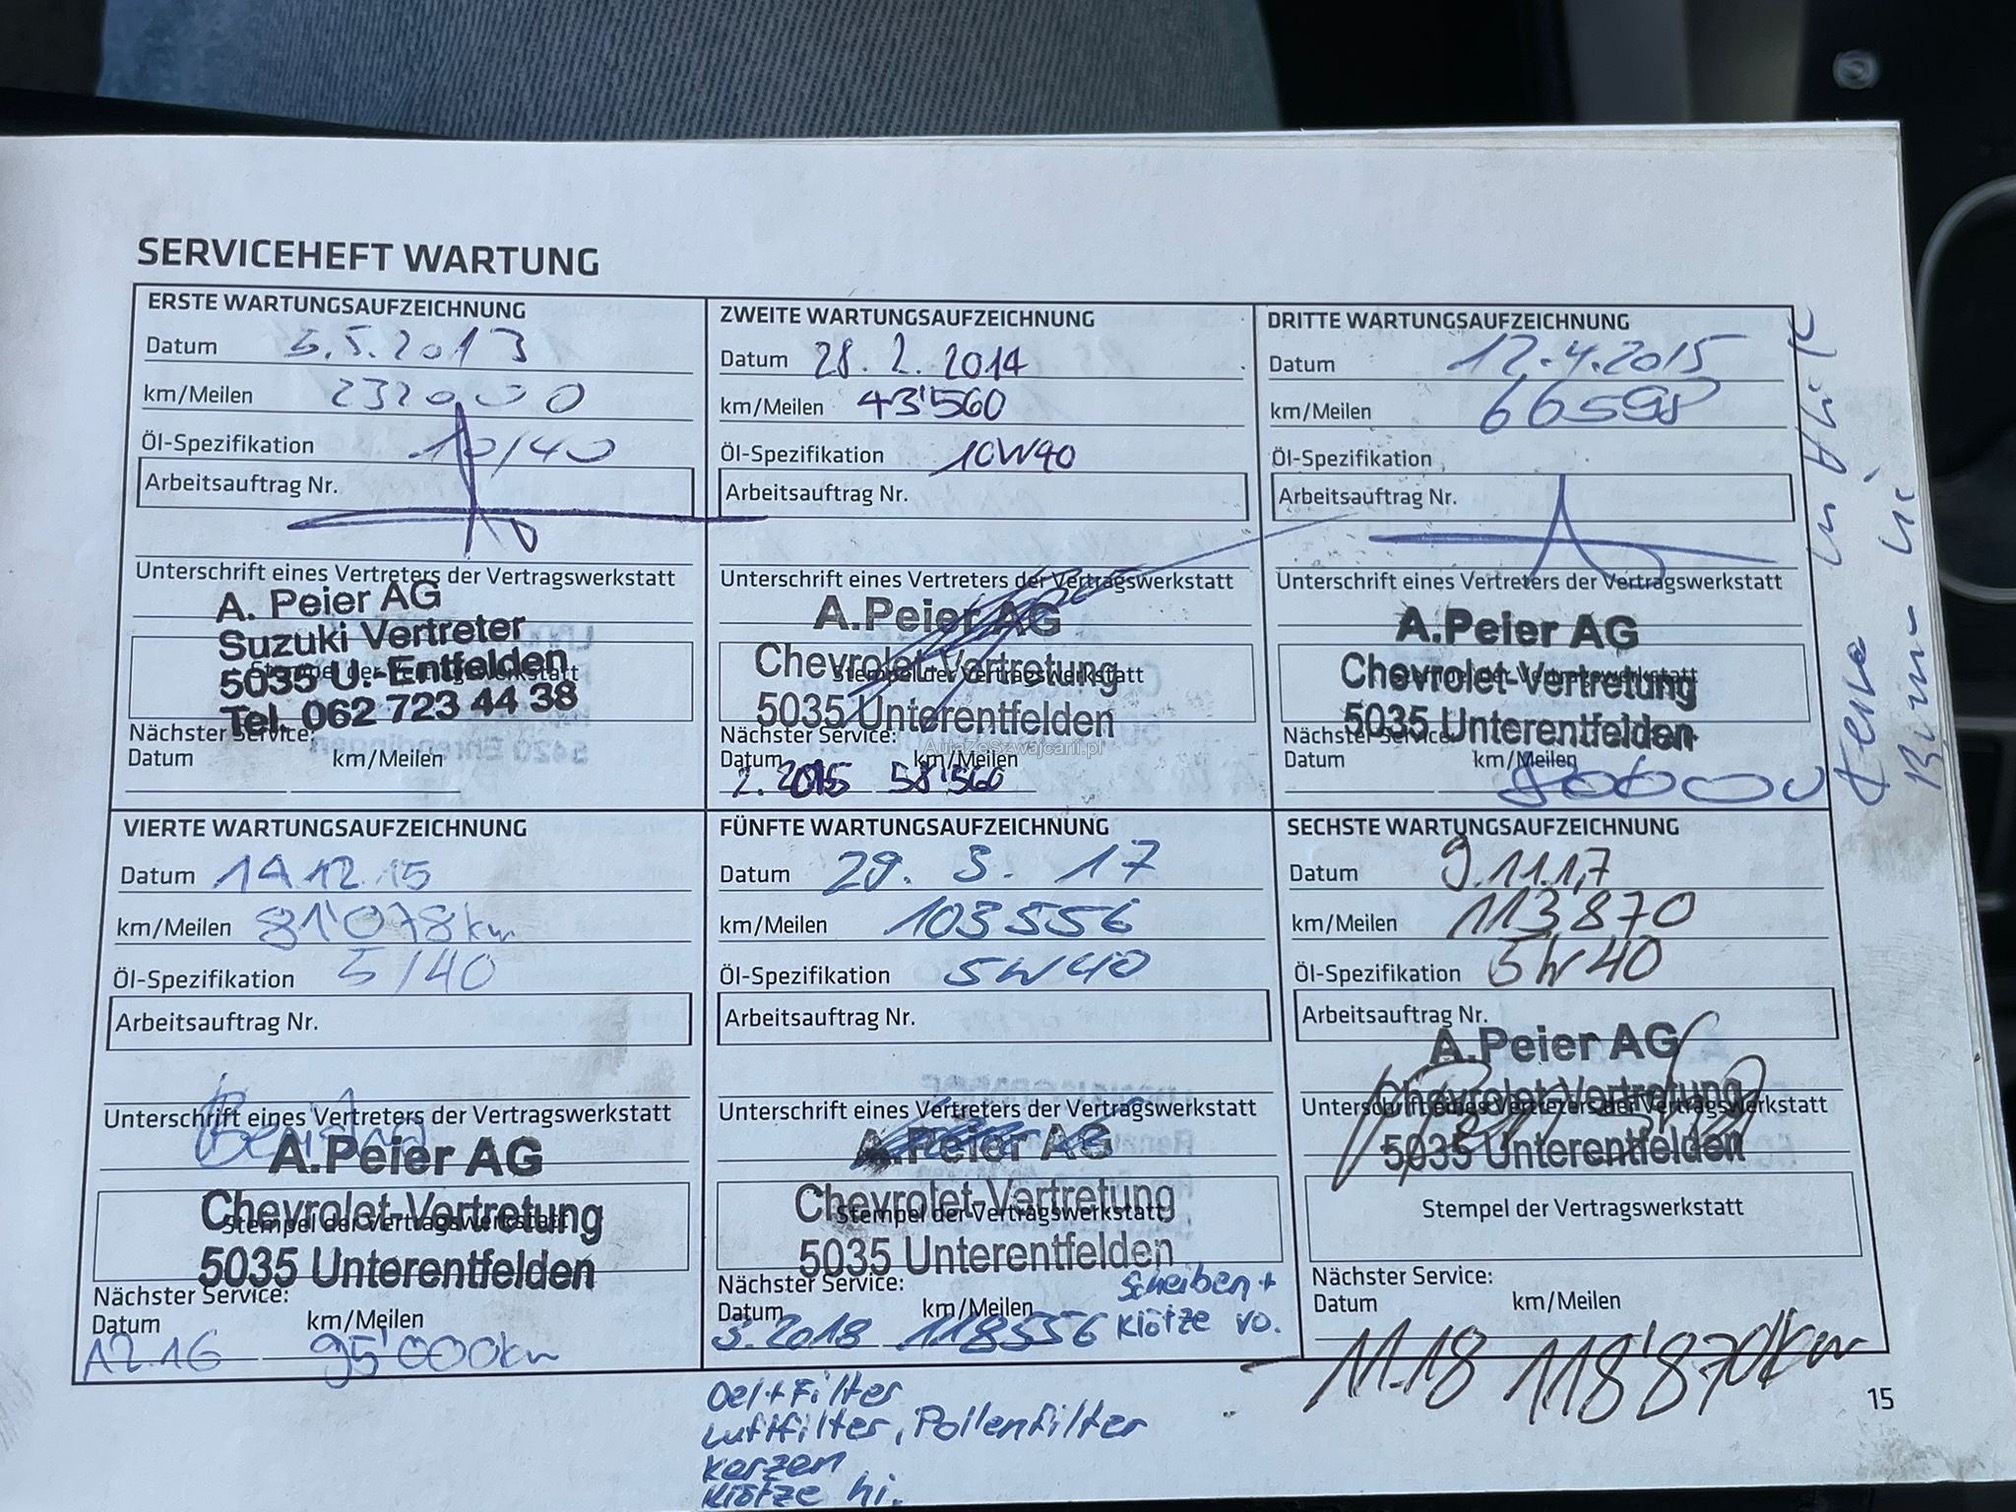 SERVICEHEFT WARTUNG
ERSTE WARTUNGSAUFZEICHNUNG
Datum 5.5.2013
km/Meilen
Öl-Spezifikation 10/40
Arbeitsauftrag Nr.
Unterschrift eines Vertreters der Vertragswerkstatt
A. Peier AG
Suzuki Vertreter
5035 U.-Entfelden
Tel. 062 723 44 38
Nächster Service:
Datum km/Meilen
ZWEITE WARTUNGSAUFZEICHNUNG
Datum 28.2.2014
km/Meilen 43'560
Öl-Spezifikation 10W40
Arbeitsauftrag Nr.
Unterschrift eines Vertreters der Vertragswerkstatt
A.Peier AG
Chevrolet-Vertretung
Stempel der Vertragswerkstatt
5035 Unterentfelden
Nächster Service:
AutaZeSzwajcarii.pl
Datum km/Meilen
2.2015 58'560
DRITTE WARTUNGSAUFZEICHNUNG
Datum 12.4.2015
km/Meilen 66598
Öl-Spezifikation
Arbeitsauftrag Nr.
Unterschrift eines Vertreters der Vertragswerkstatt
A.Peier AG
Chevrolet-Vertretung
5035 Unterentfelden
Nächster Service:
Datum km/Meilen
80000
VIERTE WARTUNGSAUFZEICHNUNG
Datum 14.12.15
km/Meilen 81'078km
Öl-Spezifikation 5/40
Arbeitsauftrag Nr.
Unterschrift eines Vertreters der Vertragswerkstatt
A.Peier AG
Chevrolet-Vertretung
Stempel der Vertragswerkstatt
5035 Unterentfelden
Nächster Service:
Datum km/Meilen
12.16 95'000km
FÜNFTE WARTUNGSAUFZEICHNUNG
Datum 29. 3. 17
km/Meilen 103556
Öl-Spezifikation 5W40
Arbeitsauftrag Nr.
Unterschrift eines Vertreters der Vertragswerkstatt
A.Peier AG
Chevrolet-Vertretung
Stempel der Vertragswerkstatt
5035 Unterentfelden
Nächster Service:
Datum km/Meilen
3.2018 118556
Scheiben +
Klötze vo.
Oel+Filter
Luftfilter, Pollenfilter
Kerzen
Klötze hi.
SECHSTE WARTUNGSAUFZEICHNUNG
Datum 9.11.17
km/Meilen 113870
Öl-Spezifikation 5W40
Arbeitsauftrag Nr.
A.Peier AG
Chevrolet-Vertretung
Unterschrift eines Vertreters der Vertragswerkstatt
5035 Unterentfelden
Stempel der Vertragswerkstatt
Nächster Service:
Datum km/Meilen
11.18 118'870km
15